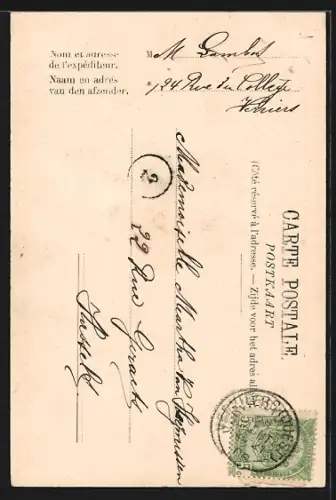 Nom et adresse
de l'expéditeur.
Naam en adres
van den afzender.
M. M Lambert
124 Rue du College
Verviers
CARTE POSTALE.
POSTKAART
(Côté réservé à l'adresse. — Zijde voor het adres
Mademoiselle Martha Van
22 Rue Geraets
Hasselt
2